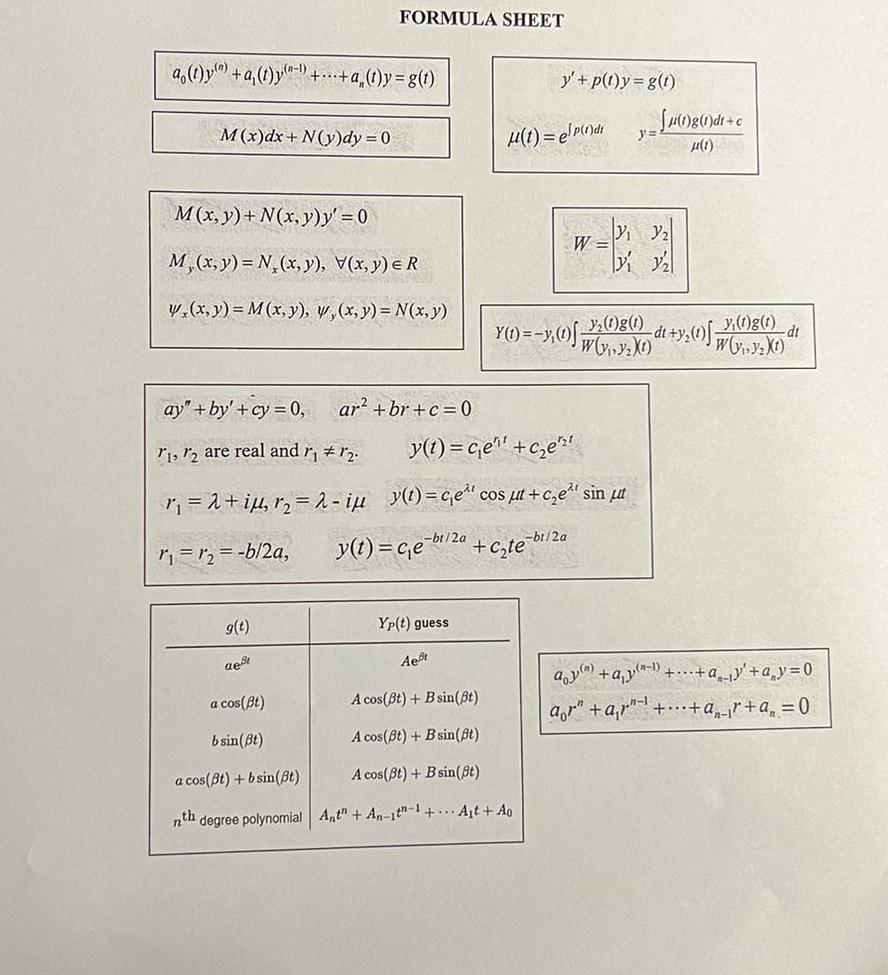 FORMULA SHEET
a₀(t)y⁽ⁿ⁾ + a₁(t)y⁽ⁿ⁻¹⁾ + ⋯ + aₙ(t)y = g(t)
M(x)dx + N(y)dy = 0
y′ + p(t)y = g(t)
μ(t) = e^{∫p(t)dt}    y = \frac{∫μ(t)g(t)dt + c}{μ(t)}
M(x, y) + N(x, y)y′ = 0
M_y(x, y) = N_x(x, y), ∀(x, y) ∈ R
ψ_x(x, y) = M(x, y), ψ_y(x, y) = N(x, y)
W = \begin{vmatrix} y₁ & y₂ \\ y₁′ & y₂′ \end{vmatrix}
Y(t) = -y₁(t)∫\frac{y₂(t)g(t)}{W(y₁, y₂)(t)}dt + y₂(t)∫\frac{y₁(t)g(t)}{W(y₁, y₂)(t)}dt
ay″ + by′ + cy = 0,    ar² + br + c = 0
r₁, r₂ are real and r₁ ≠ r₂.    y(t) = c₁e^{r₁t} + c₂e^{r₂t}
r₁ = λ + iμ, r₂ = λ - iμ    y(t) = c₁e^{λt} cos μt + c₂e^{λt} sin μt
r₁ = r₂ = -b/2a,    y(t) = c₁e^{-bt/2a} + c₂te^{-bt/2a}
g(t)    Y_P(t) guess
ae^{βt}    Ae^{βt}
a cos(βt)    A cos(βt) + B sin(βt)
b sin(βt)    A cos(βt) + B sin(βt)
a cos(βt) + b sin(βt)    A cos(βt) + B sin(βt)
n^{th} degree polynomial    Aₙtⁿ + Aₙ₋₁tⁿ⁻¹ + ⋯ A₁t + A₀
a₀y⁽ⁿ⁾ + a₁y⁽ⁿ⁻¹⁾ + ⋯ + aₙ₋₁y′ + aₙy = 0
a₀rⁿ + a₁rⁿ⁻¹ + ⋯ + aₙ₋₁r + aₙ = 0